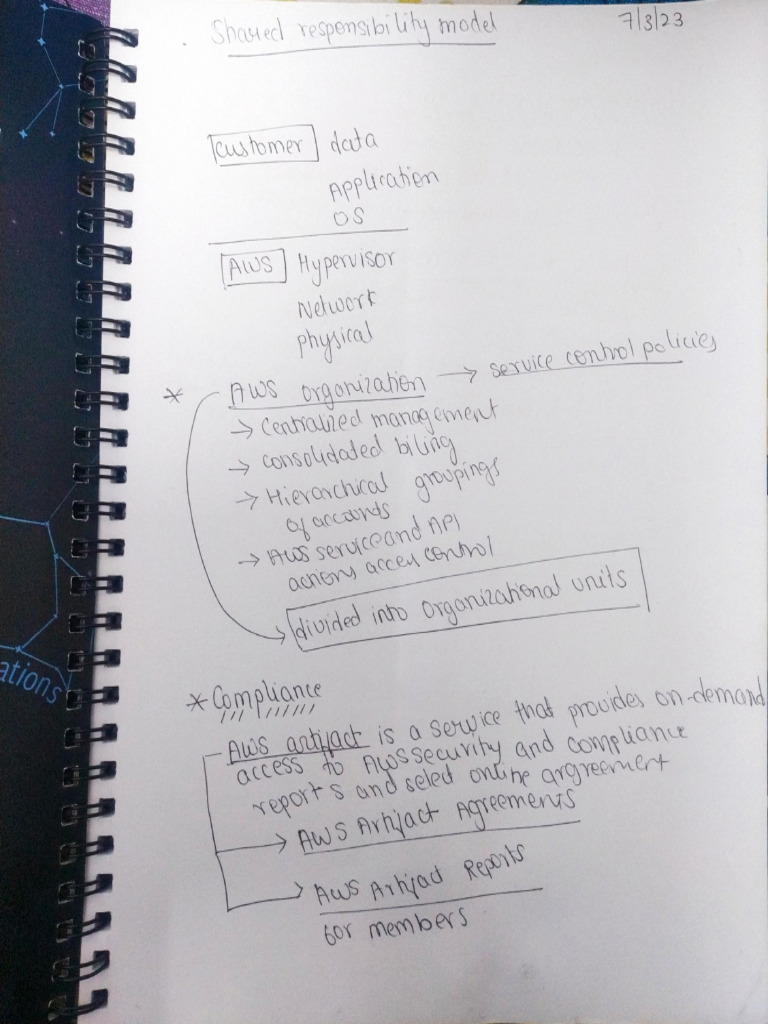 Shared responsibility model 7/3/23
customer data
Application
OS
AWS Hypervisor
Network
physical
* AWS organization → service control policies
→ Centralized management
→ consolidated biling
→ Hierarchical groupings
of accounts
→ AWS service and API
actions access control
divided into organizational units
ations
* Compliance
AWS artifact is a service that provides on-demand
access to AWS security and compliance
reports and select online argreement
→ AWS Artifact Agreements
→ AWS Artifact Reports
for members